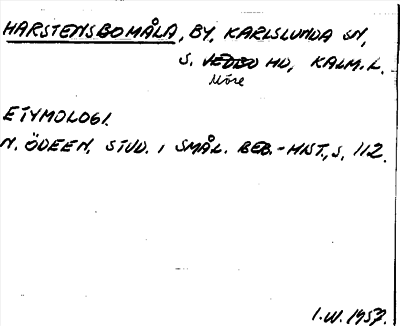 HARSTENSBOMÅLA, BY, KARLSLUNDA SN,
S. VEDBO HD, KALM. L.
Möre
ETYMOLOGI.
N. ÖDEEN, STUD. I SMÅL. BEB.-HIST., S. 112.
I.W. 1957.